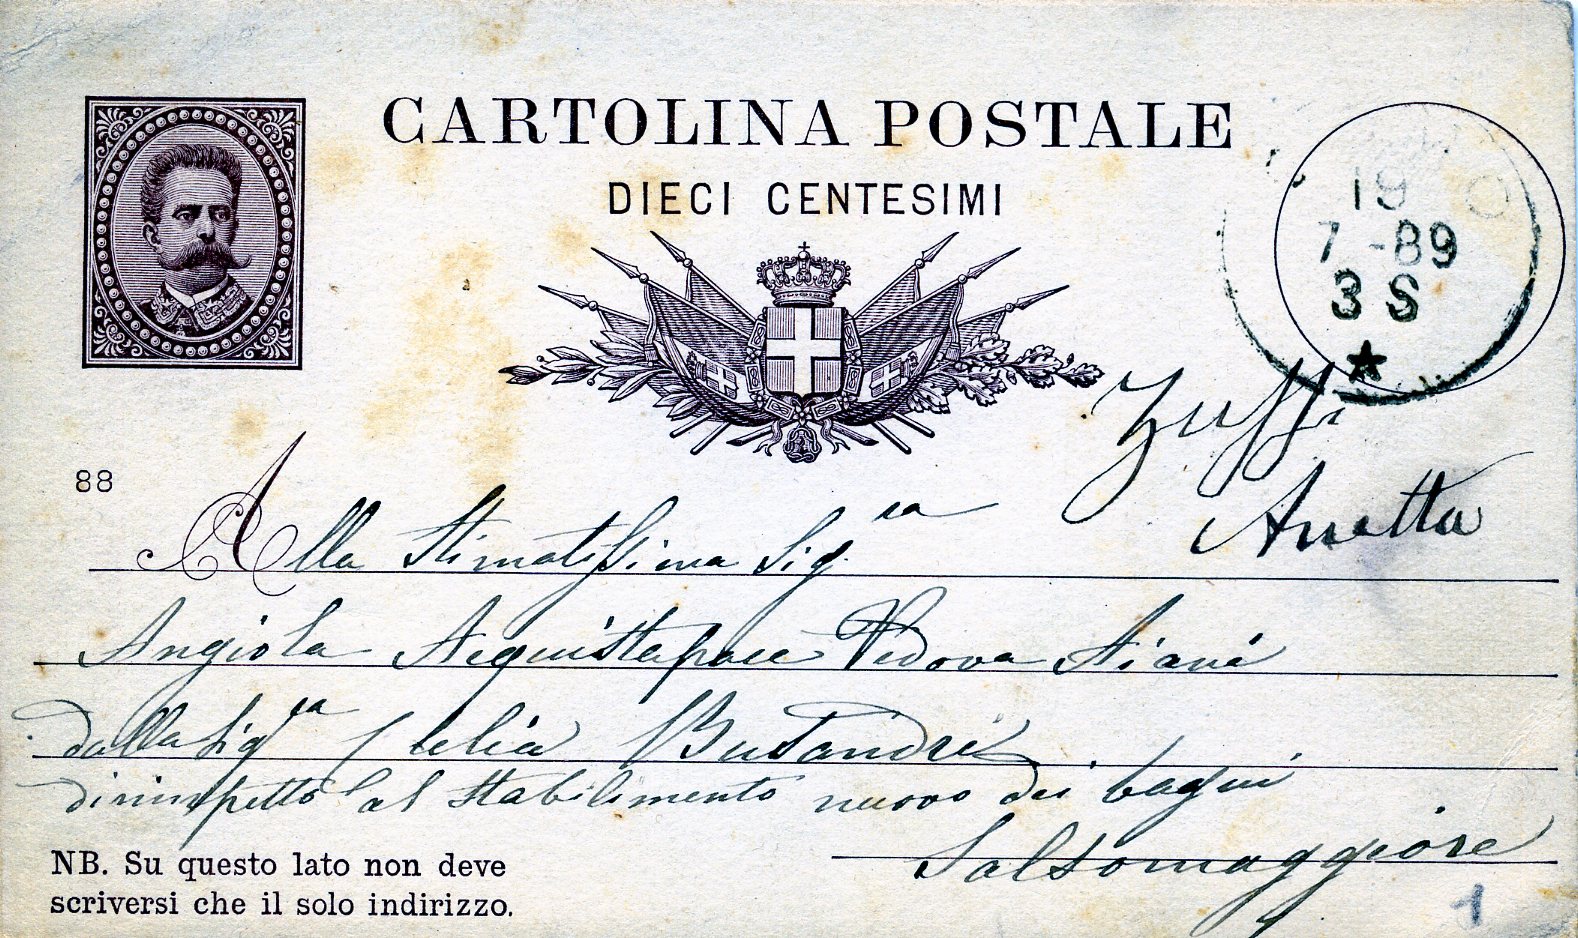 CARTOLINA POSTALE
DIECI CENTESIMI
19
7 -89
3 S
88
Zuffi
Anetta
Alla Stimatissima Sig.ra
Angiola Acquistapace Vedova
dalla Sig.ra Clelia
dirimpetto al Stabilimento nuovo dei bagni
Salsomaggiore
NB. Su questo lato non deve
scriversi che il solo indirizzo.
1